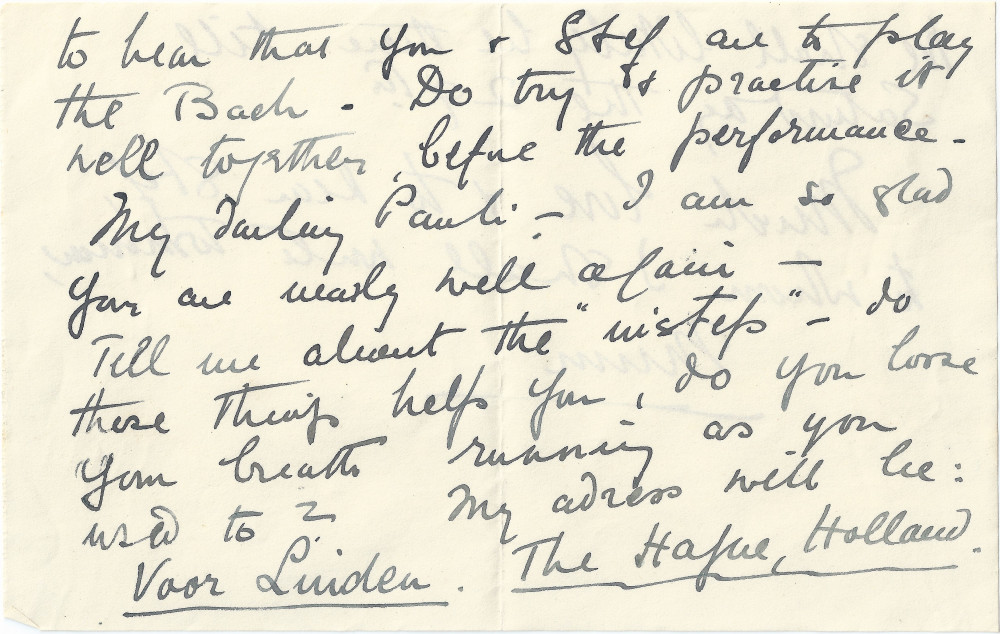 to hear that you & Stef are to play
the Bach - Do try & practise it
well together, before the performance -
My darling Pauli - I am so glad
you are nearly well again -
Tell me about the "insteps" - do
those things help you, do you loose
your breath running as you
used to? My adress will be:
Voor Linden. The Hague, Holland.